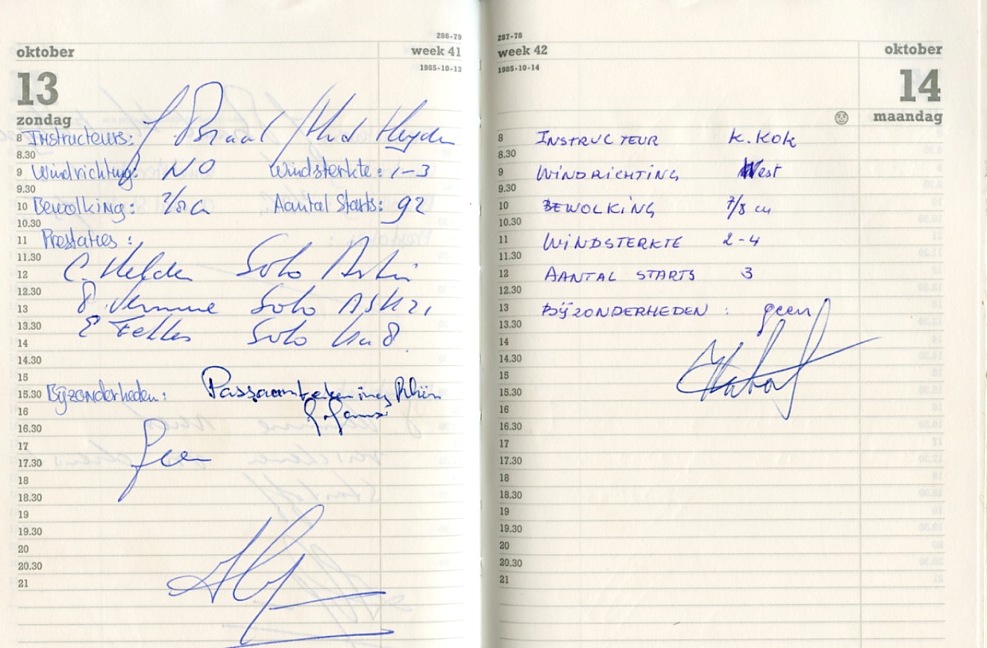 286-79
oktober week 41
1985-10-13
13
zondag
8 Instructeurs: J Braal / Ahd Heyden
8.30
9 Windrichting: NO Windsterkte: 1-3
9.30
10 Bewolking: 7/8 cu Aantal Starts: 92
10.30
11 Prestaties:
11.30
12 C. Helden Solo
12.30
13 Solo ASK21
13.30 Solo Ka8.
14
14.30
15
15.30 Bijzonderheden: Rhön
16
16.30
17 geen
17.30
18
18.30
19
19.30
20
20.30
21
287-78
week 42 oktober
1985-10-14
14
maandag
8 INSTRUCTEUR K. KOK
8.30
9 WINDRICHTING West
9.30
10 BEWOLKING 7/8 cu
10.30
11 WINDSTERKTE 2-4
11.30
12 AANTAL STARTS 3
12.30
13 BIJZONDERHEDEN : geen
13.30
14
14.30
15
15.30
16
16.30
17
17.30
18
18.30
19
19.30
20
20.30
21